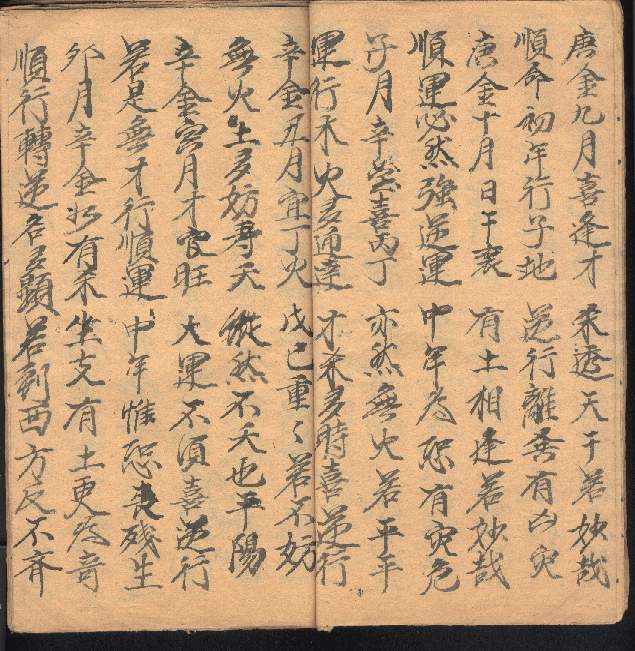 庚金九月喜逢才 采透天干若妙哉
順命初年行子地 逆行離香有凶灾
庚金十月日干衰 有土相逢若妙哉
順運必然強逆運 中年為恐有灾危
子月辛金喜丙丁 亦然無火若平平
運行木火多通達 才采多時喜逆行
辛金丑月宜丁火 戊己重〻若不妨
無火土多妨壽夭 縱然不夭也平陽
辛金寅月才官旺 大運不須喜逆行
若是無才行順運 中年惟恐喪殘生
卯月辛金於有末 坐支有土更為奇
順行轉逆名多顯 若到西方反不齊